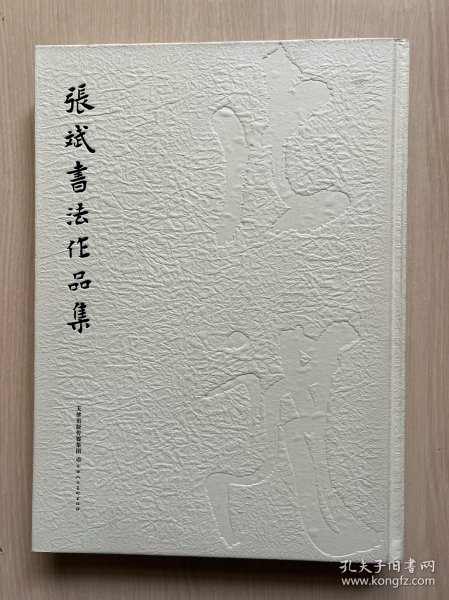 張斌書法作品集
天津出版传媒集团
天津人民美术出版社
孔夫子旧书网
www.kongfz.com